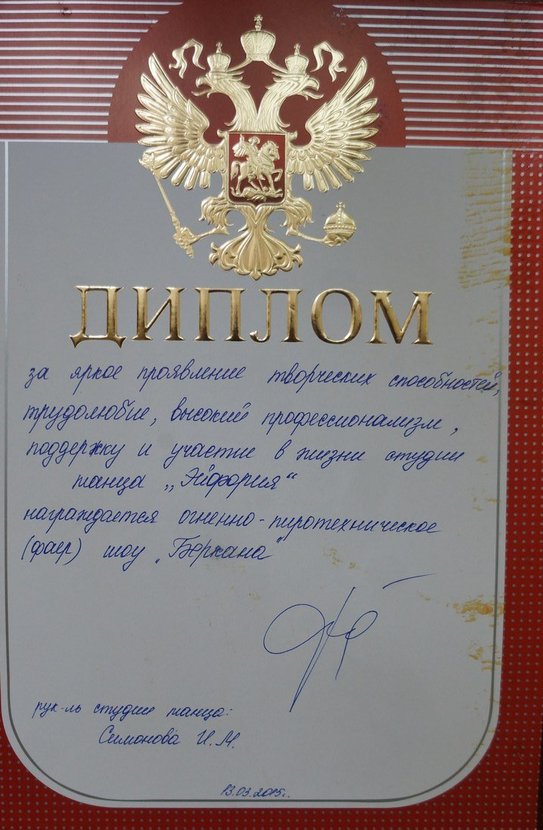 ДИПЛОМ
за яркое проявление творческих способностей,
трудолюбие, высокий профессионализм,
поддержку и участие в жизни студии
танца „Эйфория“
награждается огненно-пиротехническое
(фаер) шоу „Беркана“
рук-ль студии танца:
Симонова И.М.
13.03.2015г.